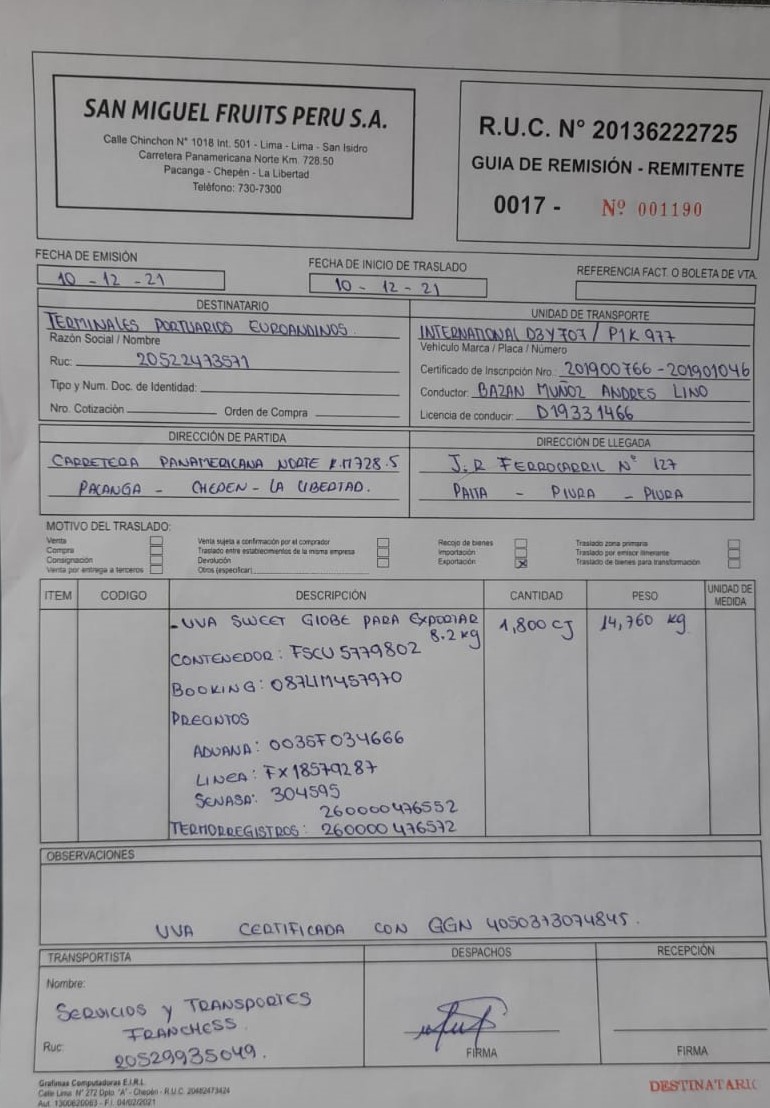 SAN MIGUEL FRUITS PERU S.A.
Calle Chinchon N° 1018 Int. 501 - Lima - Lima - San Isidro
Carretera Panamericana Norte Km. 728.50
Pacanga - Chepén - La Libertad
Teléfono: 730-7300
R.U.C. N° 20136222725
GUIA DE REMISIÓN - REMITENTE
0017 - Nº 001190
FECHA DE EMISIÓN
10 - 12 - 21
FECHA DE INICIO DE TRASLADO
10 - 12 - 21
REFERENCIA FACT. O BOLETA DE VTA.
DESTINATARIO
TERMINALES PORTUARIOS EUROANDINOS.
Razón Social / Nombre
Ruc: 20522473571
Tipo y Num. Doc. de Identidad:
Nro. Cotización Orden de Compra
UNIDAD DE TRANSPORTE
INTERNATIONAL D3Y707 / P1K 977
Vehículo Marca / Placa / Número
Certificado de Inscripción Nro.: 201900766 - 201901046
Conductor: BAZAN MUÑOZ ANDRES LINO
Licencia de conducir: D19331466
DIRECCIÓN DE PARTIDA
CARRETERA PANAMERICANA NORTE K.M728.5
PACANGA - CHEPEN - LA LIBERTAD.
DIRECCIÓN DE LLEGADA
J.R FERROCARRIL N° 127
PAITA - PIURA - PIURA
MOTIVO DEL TRASLADO:
Venta
Compra
Consignación
Venta por entrega a terceros
Venta sujeta a confirmación por el comprador
Traslado entre establecimientos de la misma empresa
Devolución
Otros (especificar)
Recojo de bienes
Importación
Exportación X
Traslado zona primaria
Traslado por emisor itinerante
Traslado de bienes para transformación
ITEM CODIGO DESCRIPCIÓN CANTIDAD PESO UNIDAD DE MEDIDA
- UVA SWEET GLOBE PARA EXPORTAR 1,800 CJ 14,760 kg
8.2 kg
CONTENEDOR: FSCU 5779802
BOOKING: 087LIM457970
PRECINTOS
ADUANA: 0035F034666
LINEA: FX18579287
SENASA: 304595
260000476552
TERMORREGISTROS: 260000476572
OBSERVACIONES
UVA CERTIFICADA CON GGN 4050373074845.
TRANSPORTISTA
Nombre:
SERVICIOS Y TRANSPORTES
FRANCHESS.
Ruc: 20529935049.
DESPACHOS
FIRMA
RECEPCIÓN
FIRMA
Grafimas Computadoras E.I.R.L.
Calle Lima N° 272 Dpto. "A" - Chepén - R.U.C. 20482473424
Aut. 1300620063 - F.I. 04/02/2021
DESTINATARIO